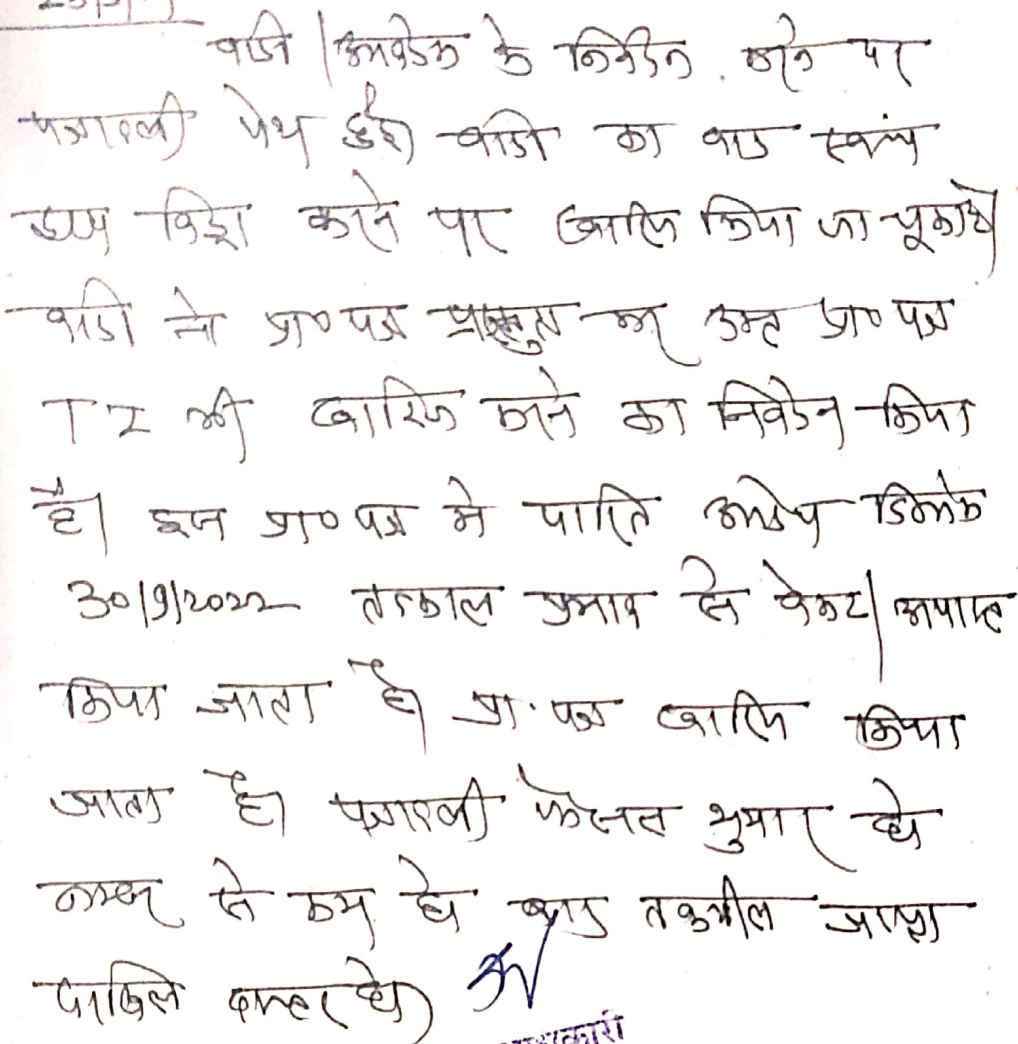 वादी/आवेदक के निवेदन करने पर
पत्रावली पेश हुई। वादी का वाद स्वयं
द्वारा विड्रा करने पर खारिज किया जा चूका है।
वादी ने प्रा० पत्र प्रस्तुत कर उक्त प्रा० पत्र
T Z भी खारिज करने का निवेदन किया
है। इस प्रा० पत्र मे पारित आदेश दिनांक
30/9/2022 तत्काल प्रभाव से वेकेट/अपास्त
किया जाता है। प्रा. पत्र खारिज किया
जाता है। पत्रावली फैसल शुमार हो
नम्बर से कम हो बाद तकमील जाप्ता
दाखिल दफ्तर हो।